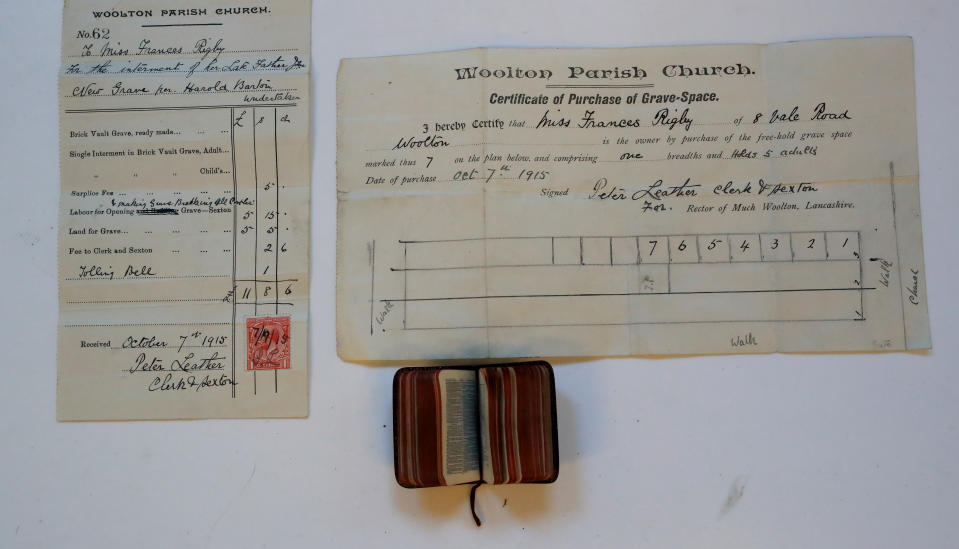 WOOLTON PARISH CHURCH.
No. 62
To Miss Frances Rigby
For the interment of her Late Father
New Grave per. Harold Barton
undertaker
£ s d
Brick Vault Grave, ready made... ... ...
Single Interment in Brick Vault Grave, Adult...
" " " Child's...
Surplice Fee ... ... ... ... ... 5 .
& making
Labour for Opening Grave—Sexton 5 15 .
Land for Grave... ... ... ... ... 5 5 .
Fee to Clerk and Sexton ... ... ... 2 6
Tolling Bell 1
11 8 6
Received October 7th 1915
Peter Leather
Clerk & Sexton
Woolton Parish Church.
Certificate of Purchase of Grave-Space.
I hereby Certify that Miss Frances Rigby of 8 Vale Road
Woolton is the owner by purchase of the free-hold grave space
marked thus 7 on the plan below, and comprising one breadths and Holds 5 adults
Date of purchase Oct 7th 1915
Signed Peter Leather Clerk & Sexton
For. Rector of Much Woolton, Lancashire.
7 6 5 4 3 2 1
3
2
1
Walk
Walk
Walk
Church